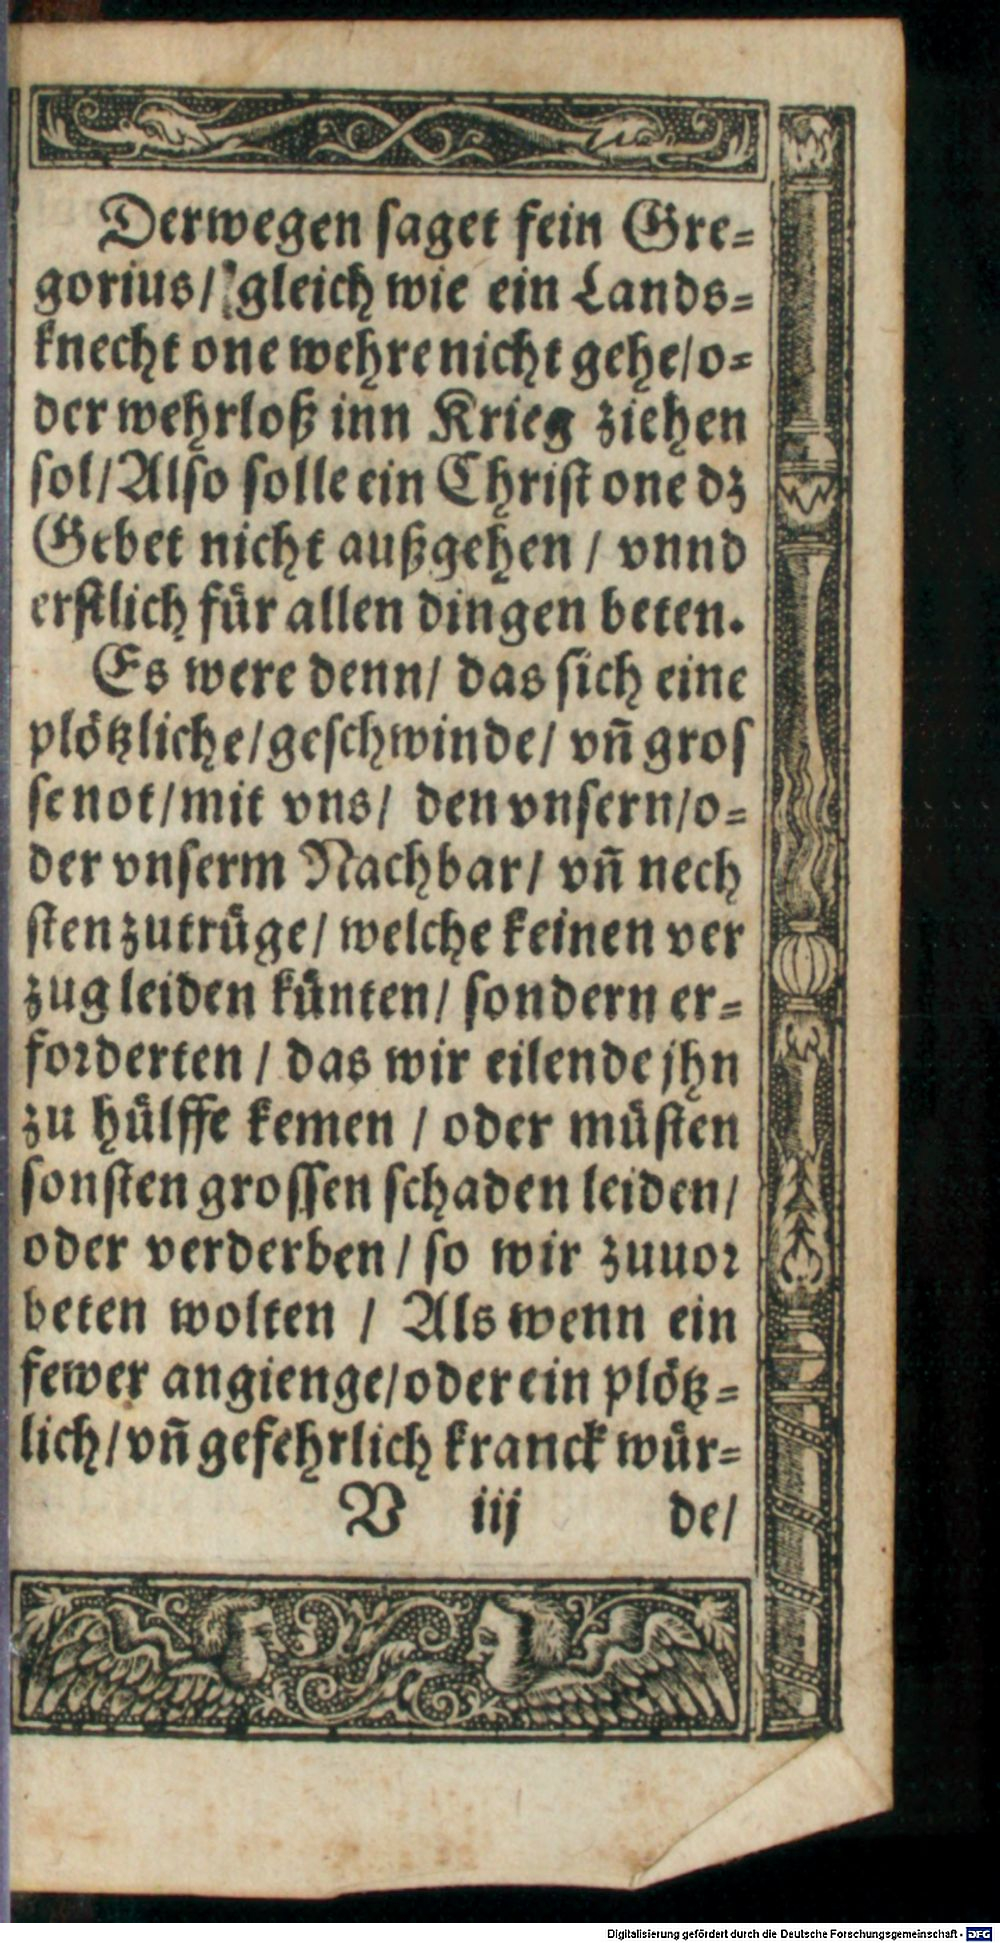 Derwegen saget fein Gre=
gorius/ gleich wie ein Lands=
knecht one wehre nicht gehe/o=
der wehrloß inn Krieg ziehen
sol/Also solle ein Christ one dz
Gebet nicht außgehen / vnnd
erstlich für allen dingen beten.
Es were denn/ das sich eine
plötzliche/geschwinde/ vñ gros
se not/mit vns/ den vnsern/o=
der vnserm Nachbar/ vñ nech
sten zutrüge/ welche keinen ver
zug leiden künten/ sondern er=
forderten / das wir eilende jhn
zu hülffe kemen / oder müsten
sonsten grossen schaden leiden/
oder verderben/ so wir zuuor
beten wolten / Als wenn ein
fewer angienge/oder ein plötz=
lich/vñ gefehrlich kranck wür=
V iij de/
Digitalisierung gefördert durch die Deutsche Forschungsgemeinschaft - DFG